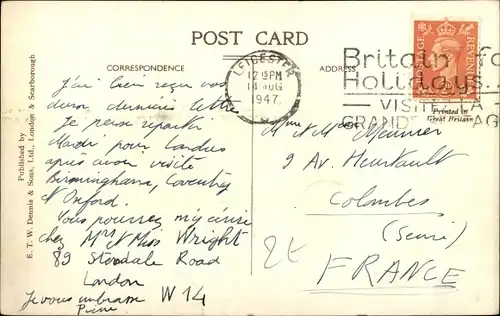 POST CARD
CORRESPONDENCE
ADDRESS
LEICESTER
12 15 PM
14 AUG
1947
Britain fo
Holidays.
VISIT
GRAND
POSTAGE
REVENUE
Printed in
Great Britain
Published by
E. T. W. Dennis & Sons, Ltd., London & Scarborough
J'ai bien reçu vos
deux dernières lettres
Je pense repartir
Mardi pour Londres
après avoir visité
Birmingham, Coventry
et Oxford.
Vous pourrez m'écrire
chez Mrs et Miss Wright
89 Road
London
W 14
Je vous embrasse
Pierre
Mme et Mr Meunier
9 Av.
Colombes
(Seine)
FRANCE